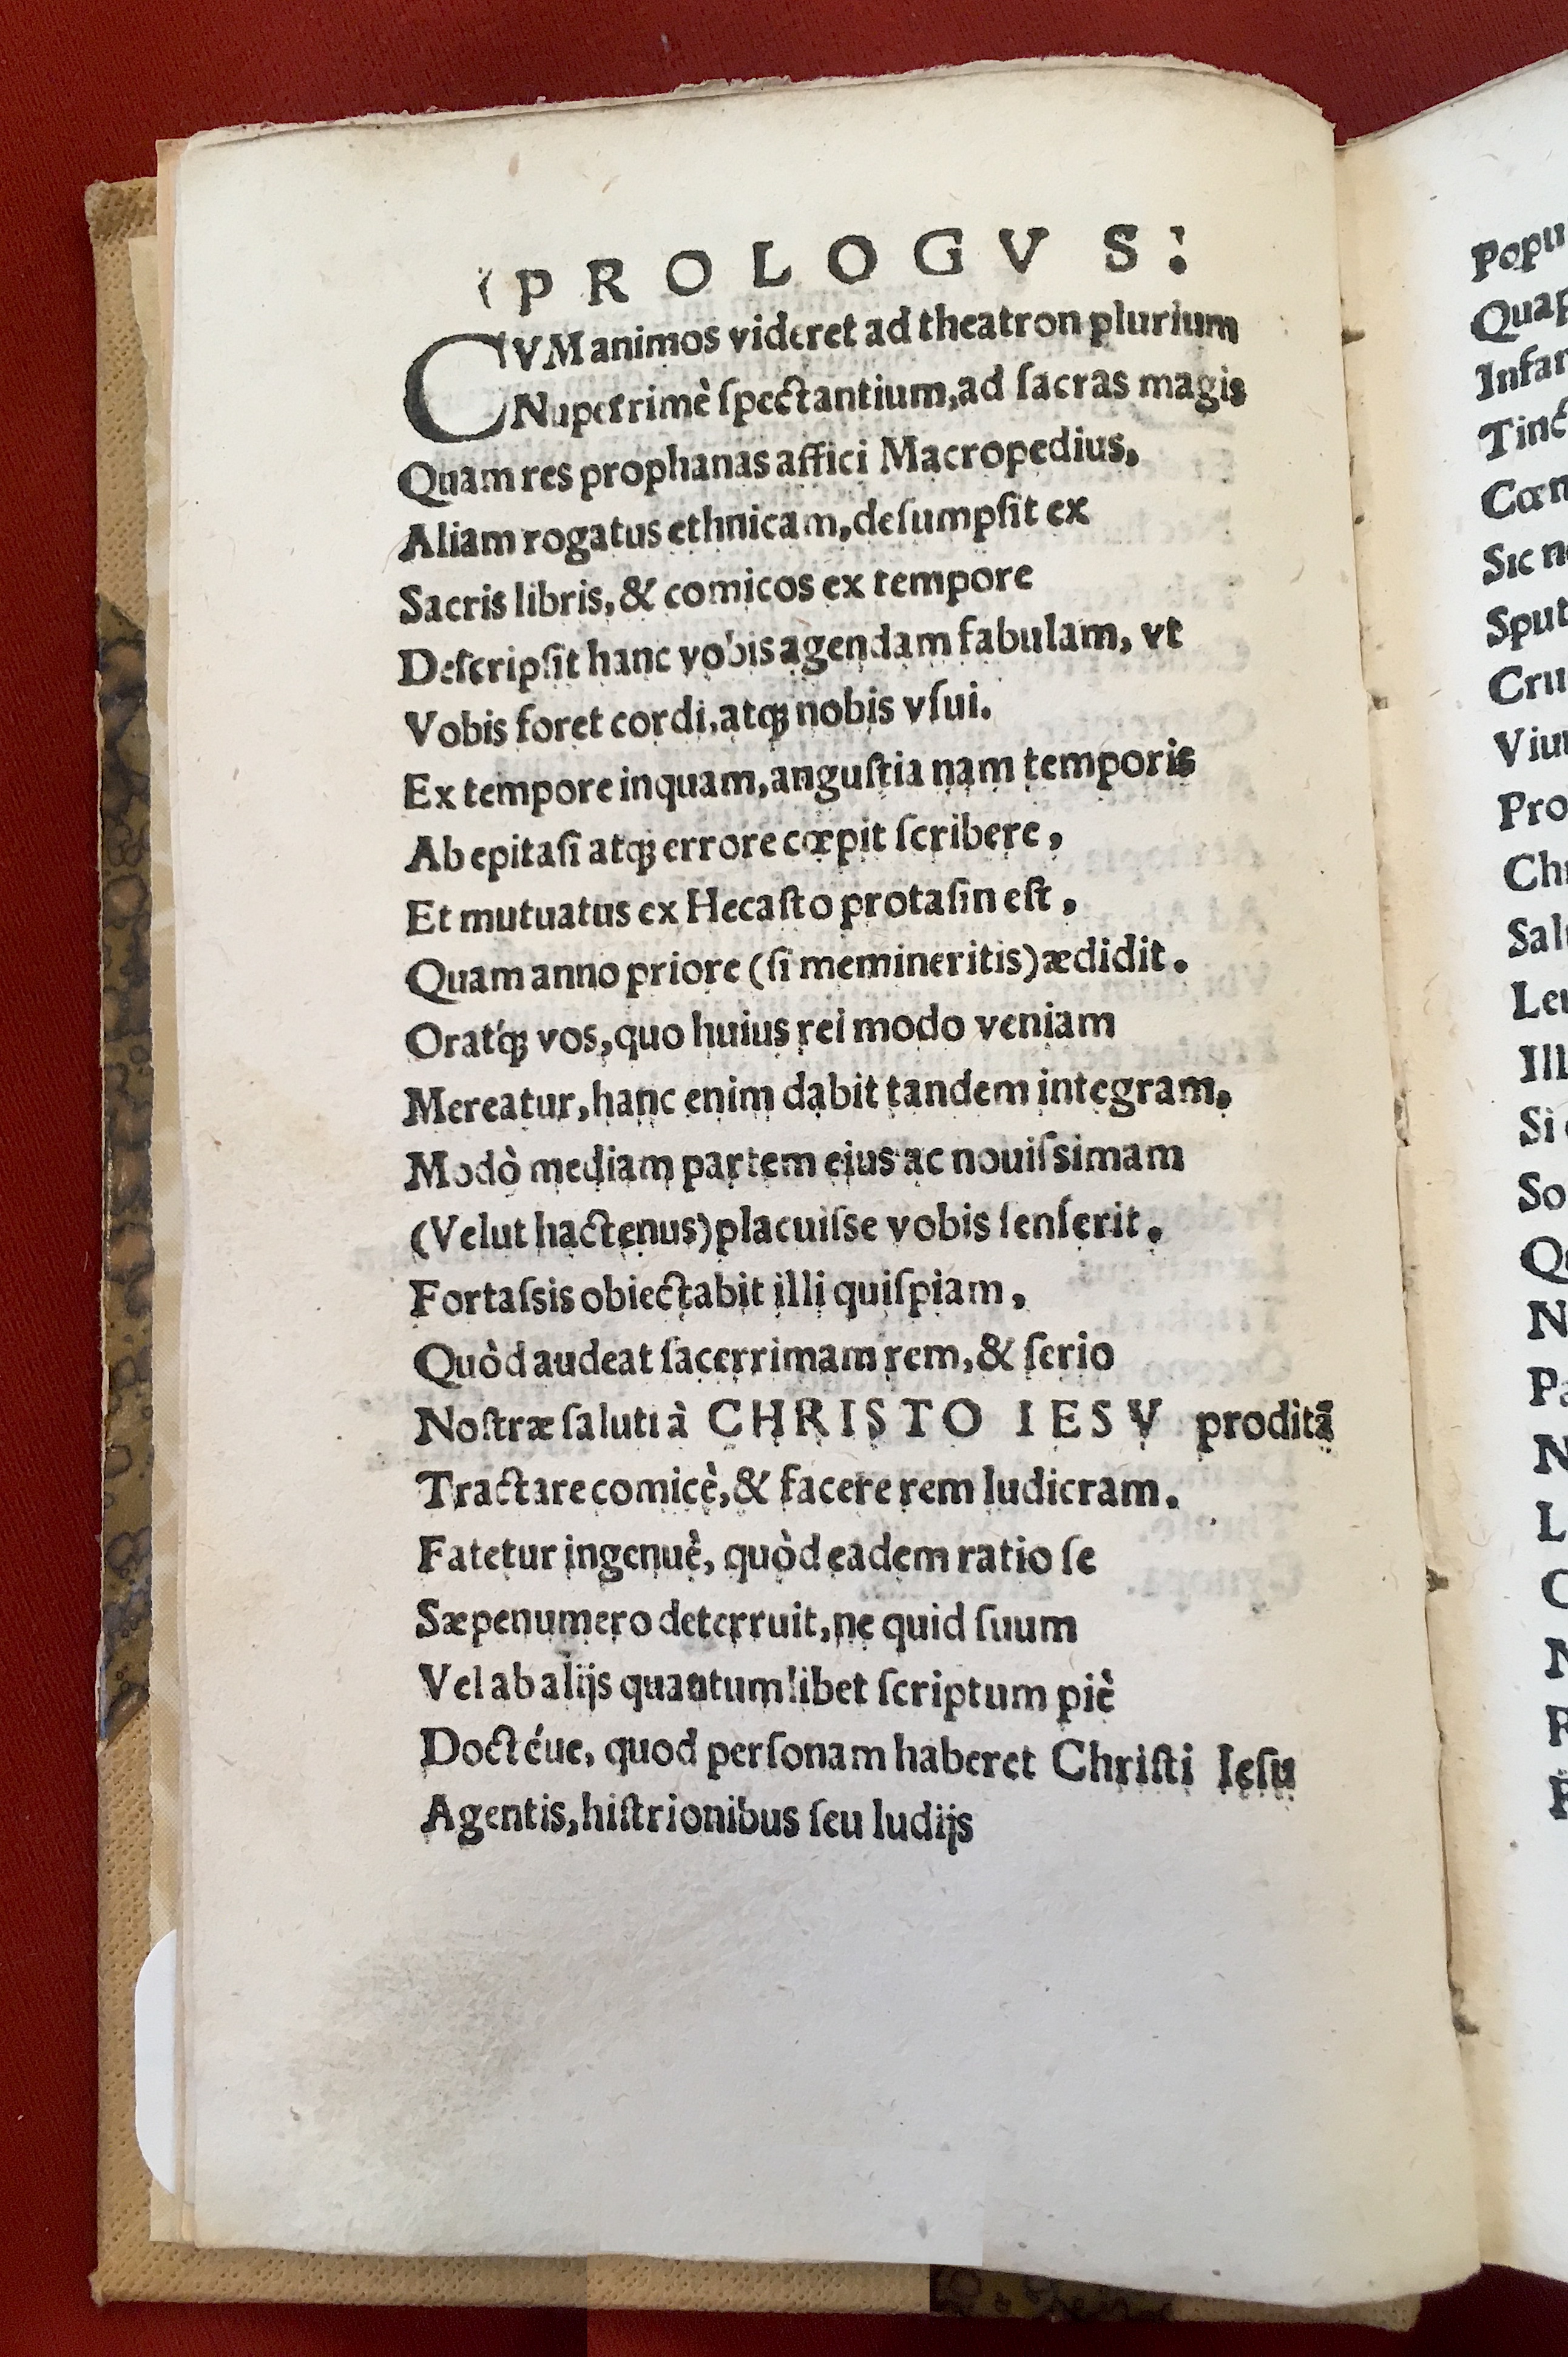 PROLOGVS:
CVM animos videret ad theatron plurium
Nuperrimè ſpectantium, ad ſacras magis
Quam res prophanas affici Macropedius,
Aliam rogatus ethnicam, deſumpſit ex
Sacris libris, & comicos ex tempore
Deſcripſit hanc vobis agendam fabulam, vt
Vobis foret cordi, atqꝫ nobis vſui.
Ex tempore inquam, anguſtia nam temporis
Ab epitaſi atqꝫ errore cœpit ſcribere,
Et mutuatus ex Hecaſto protaſin eſt,
Quam anno priore (ſi memineritis) ædidit.
Orat́qꝫ vos, quo huius rei modo veniam
Mereatur, hanc enim dabit tandem integram,
Modò mediam partem eius ac nouiſsimam
(Velut hactenus) placuiſse vobis ſenſerit.
Fortaſsis obiectabit illi quiſpiam,
Quòd audeat ſacerrimam rem, & ſerio
Noſtræ ſaluti à CHRISTO IESV proditā
Tractare comicè, & facere rem ludicram.
Fatetur ingenuè, quòd eadem ratio ſe
Sæpenumero deterruit, ne quid ſuum
Vel ab alijs quantumlibet ſcriptum piè
Doctéue, quod perſonam haberet Chriſti Ieſu
Agentis, hiſtrionibus ſeu ludijs
Popu
Quap
Infan
Cœn
Sic n
Sput
Cru
Viu
Pro
Chr
Salu
Ill
Si
So
N
Pa
N
L